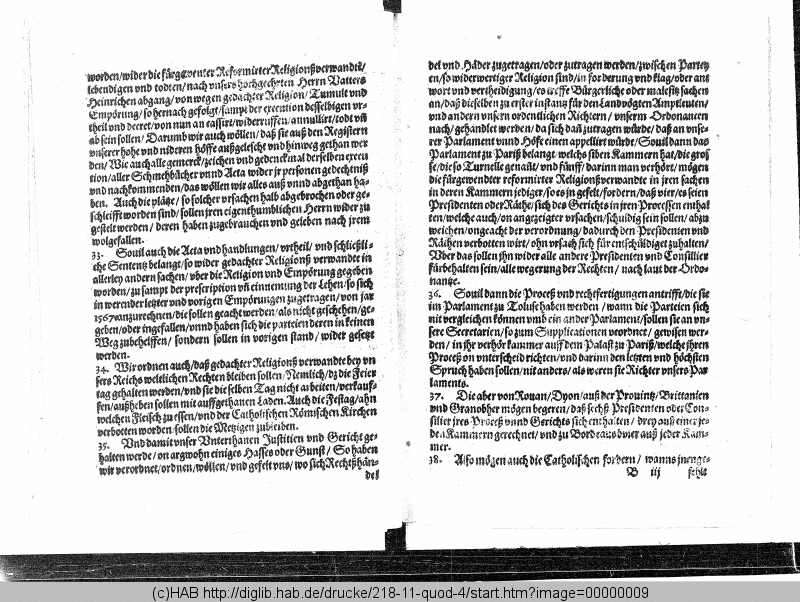 worden/ wider die fürgewenter Reformirter Religionßverwandte/
lebendigen vnd todten/ nach vnsers hochgeehrten Herrn Vatters
Heinrichen abgang/ von wegen gedachter Religion/ Tumult vnd
Empörung/ so hernach gefolgt/ sampt der execution desselbigen vr-
theil vnd decret/ von nun an cassirt/ widerruffen/ annullirt/ todt vñ
ab sein sollen/ Darumb wir auch wöllen/ daß sie auß den Registern
vnserer hohe vnd nideren höffe außgelescht vnd hinweg gethan wer
den/ Wie auch alle gemerck/ zeichen vnd gedenckmal derselben execu
tion/ aller Schmehbücher vnnd Acta wider jr personen gedechtniß
vnd nachkommenden/ das wöllen wir alles auß vnnd abgethan ha-
ben. Auch die pläze/ so solcher vrsachen halb abgebrochen oder ge-
schleifft worden sind/ sollen jren eigenthumblichen Herrn wider zu
gestelt werden/ deren haben zugebrauchen vnd geleben nach jrem
wolgefallen.
33. Souil auch die Acta vnd handlungen/ vrtheil/ vnd schließli-
che Sentenz belangt/ so wider gedachter Religionß verwandte in
allerley andern sachen/ vber die Religion vnd Empörung gegeben
worden/ zu sampt der prescription vñ einnemung der Lehen/ so sich
in werender letzter vnd vorigen Empörungen zugetragen/ von jar
1567 anzurechnen/ die sollen geacht werden/ als nicht geschehen/ ge-
geben/ oder ingefallen/ vnnd haben sich die parteien deren in keinen
Weg zubehelffen/ sondern sollen in vorigen stand/ wider gesetzt
werden.
34. Wir ordnen auch/ daß gedachter Religionß verwandte bey vn
sers Reichs weltlichen Rechten bleiben sollen/ Nemlich/ dz die Feier
tag gehalten werden/ vnd sie die selben Tag nicht arbeiten/ verkauf-
fen/ außheben sollen mit auffgethanen Laden. Auch die Festag/ ahn
welchen Fleisch zu essen/ vnd der Catholischen Römischen Kirchen
verbotten worden/ sollen die Metzigen zubleiben.
35. Vnd damit vnser Vnterthanen Justitien vnd Gericht ge-
halten werde/ on argwohn einiges Hasses oder Gunst/ So haben
wir verordnet/ ordnen/ wöllen/ vnd gefelt vns/ wo sich Rechtßhän-
del
del vnd Häder zugetragen/ oder zutragen werden/ zwischen Partey
en/ so widerwertiger Religion sind/ in forderung vnd klag/ oder ant
wort vnd vertheidigung/ es treffe Bürgerliche oder malefitz sachen
an/ daß dieselben zu erster instanz für den Landvögten Amptleuten/
vnd andern vnsern ordentlichen Richtern/ vnserm Ordonancen
nach/ gehandlet werden/ da sich dañ zutragen würde/ daß an vnse-
rer Parlament vnnd Höfe einen appellirt würde/ Souil dann das
Parlament zu Pariß belangt/ welchs siben Kammern hat/ die gros
se/ die so Turnelle genañt/ vnd fünff/ darinn man verhört/ mögen
die fürgewendter reformirter Religionßverwandte in jren sachen
in deren Kammern jediger/ so es jn gefelt/ fordern/ daß vier/ es seien
Presidenten oder Räthe/ sich des Gerichts in jren Processen enthal
ten/ welche auch/ on angezeigter vrsachen/ schuldig sein sollen/ abzu
weichen/ ongeacht der verordnung/ dadurch den Presidenten vnd
Räthen verbotten wirt/ ohn vrsach sich für entschüldiget zuhalten/
Vber das sollen jhn wider alle andere Presidenten vnd Consillier
fürbehalten sein/ alle wegerung der Rechten/ nach laut der Ordo-
nantze.
36. Souil dann die Proceß vnd rechtfertigungen antrifft/ die sie
im Parlament zu Toluse haben werden/ wann die Parteien sich
nit vergleichen können vmb ein ander Parlament/ sollen sie an vn-
sere Secretarien/ so zum Supplicationen verordnet/ gewisen wer-
den/ in jhr verhör kammer auff dem Palast zu Pariß/ welche jhren
Proceß on vnterscheid richten/ vnd darinn den letzten vnd höchsten
Spruch haben sollen/ nit anders/ als weren sie Richter vnsers Par
laments.
37. Die aber von Rouan/ Dyon/ auß der Prouintz/ Brittanien
vnd Granobher mögen begeren/ daß sechß Presidenten oder Con-
silier jres Proceß vnnd Gerichts sich enthalten/ drey auß einer je-
den Kammern gerechnet/ vnd zu Bordeaus vier auß jeder Kam-
mer.
38. Also mögen auch die Catholischen fordern/ wanns jn enge-
B iij fehlt
(c)HAB http://diglib.hab.de/drucke/218-11-quod-4/start.htm?image=00000009